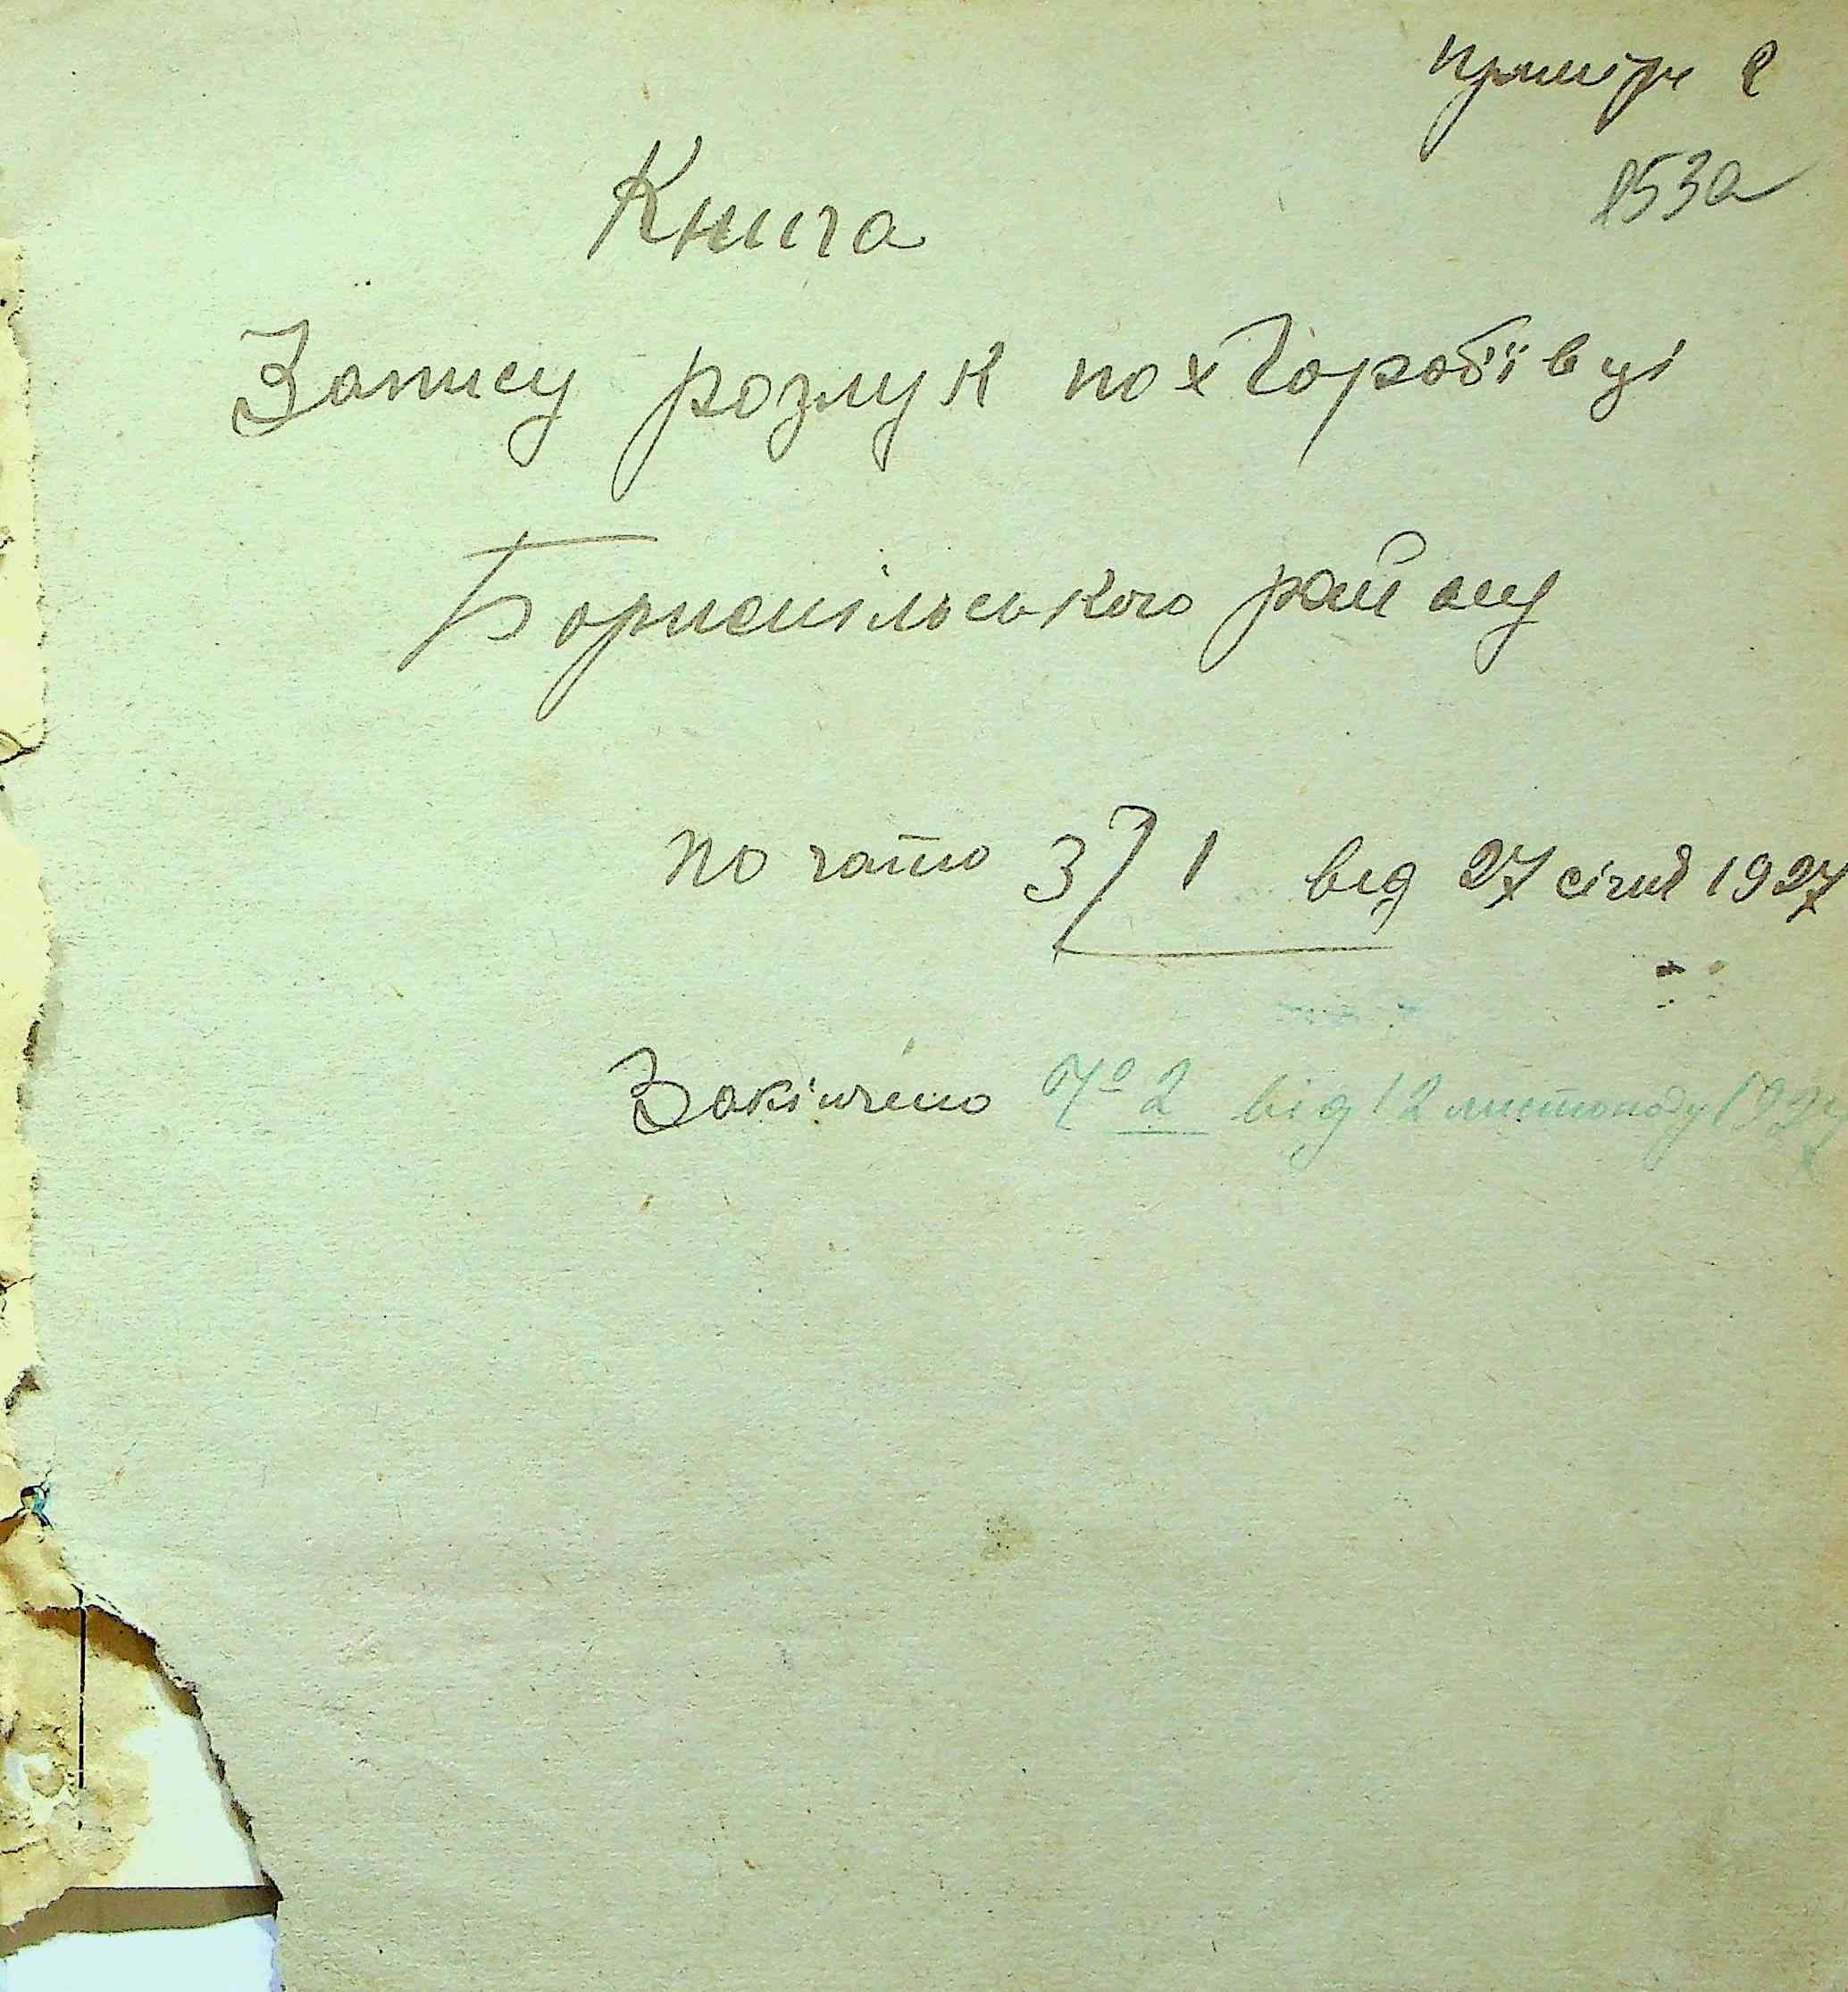 примірн 2
153а
Книга
Запису розлук по х Горобіївці
Бориспільського району
почато з 1 від 27 січня 1927
Закінчено № 2 від 12 листопаду 1927